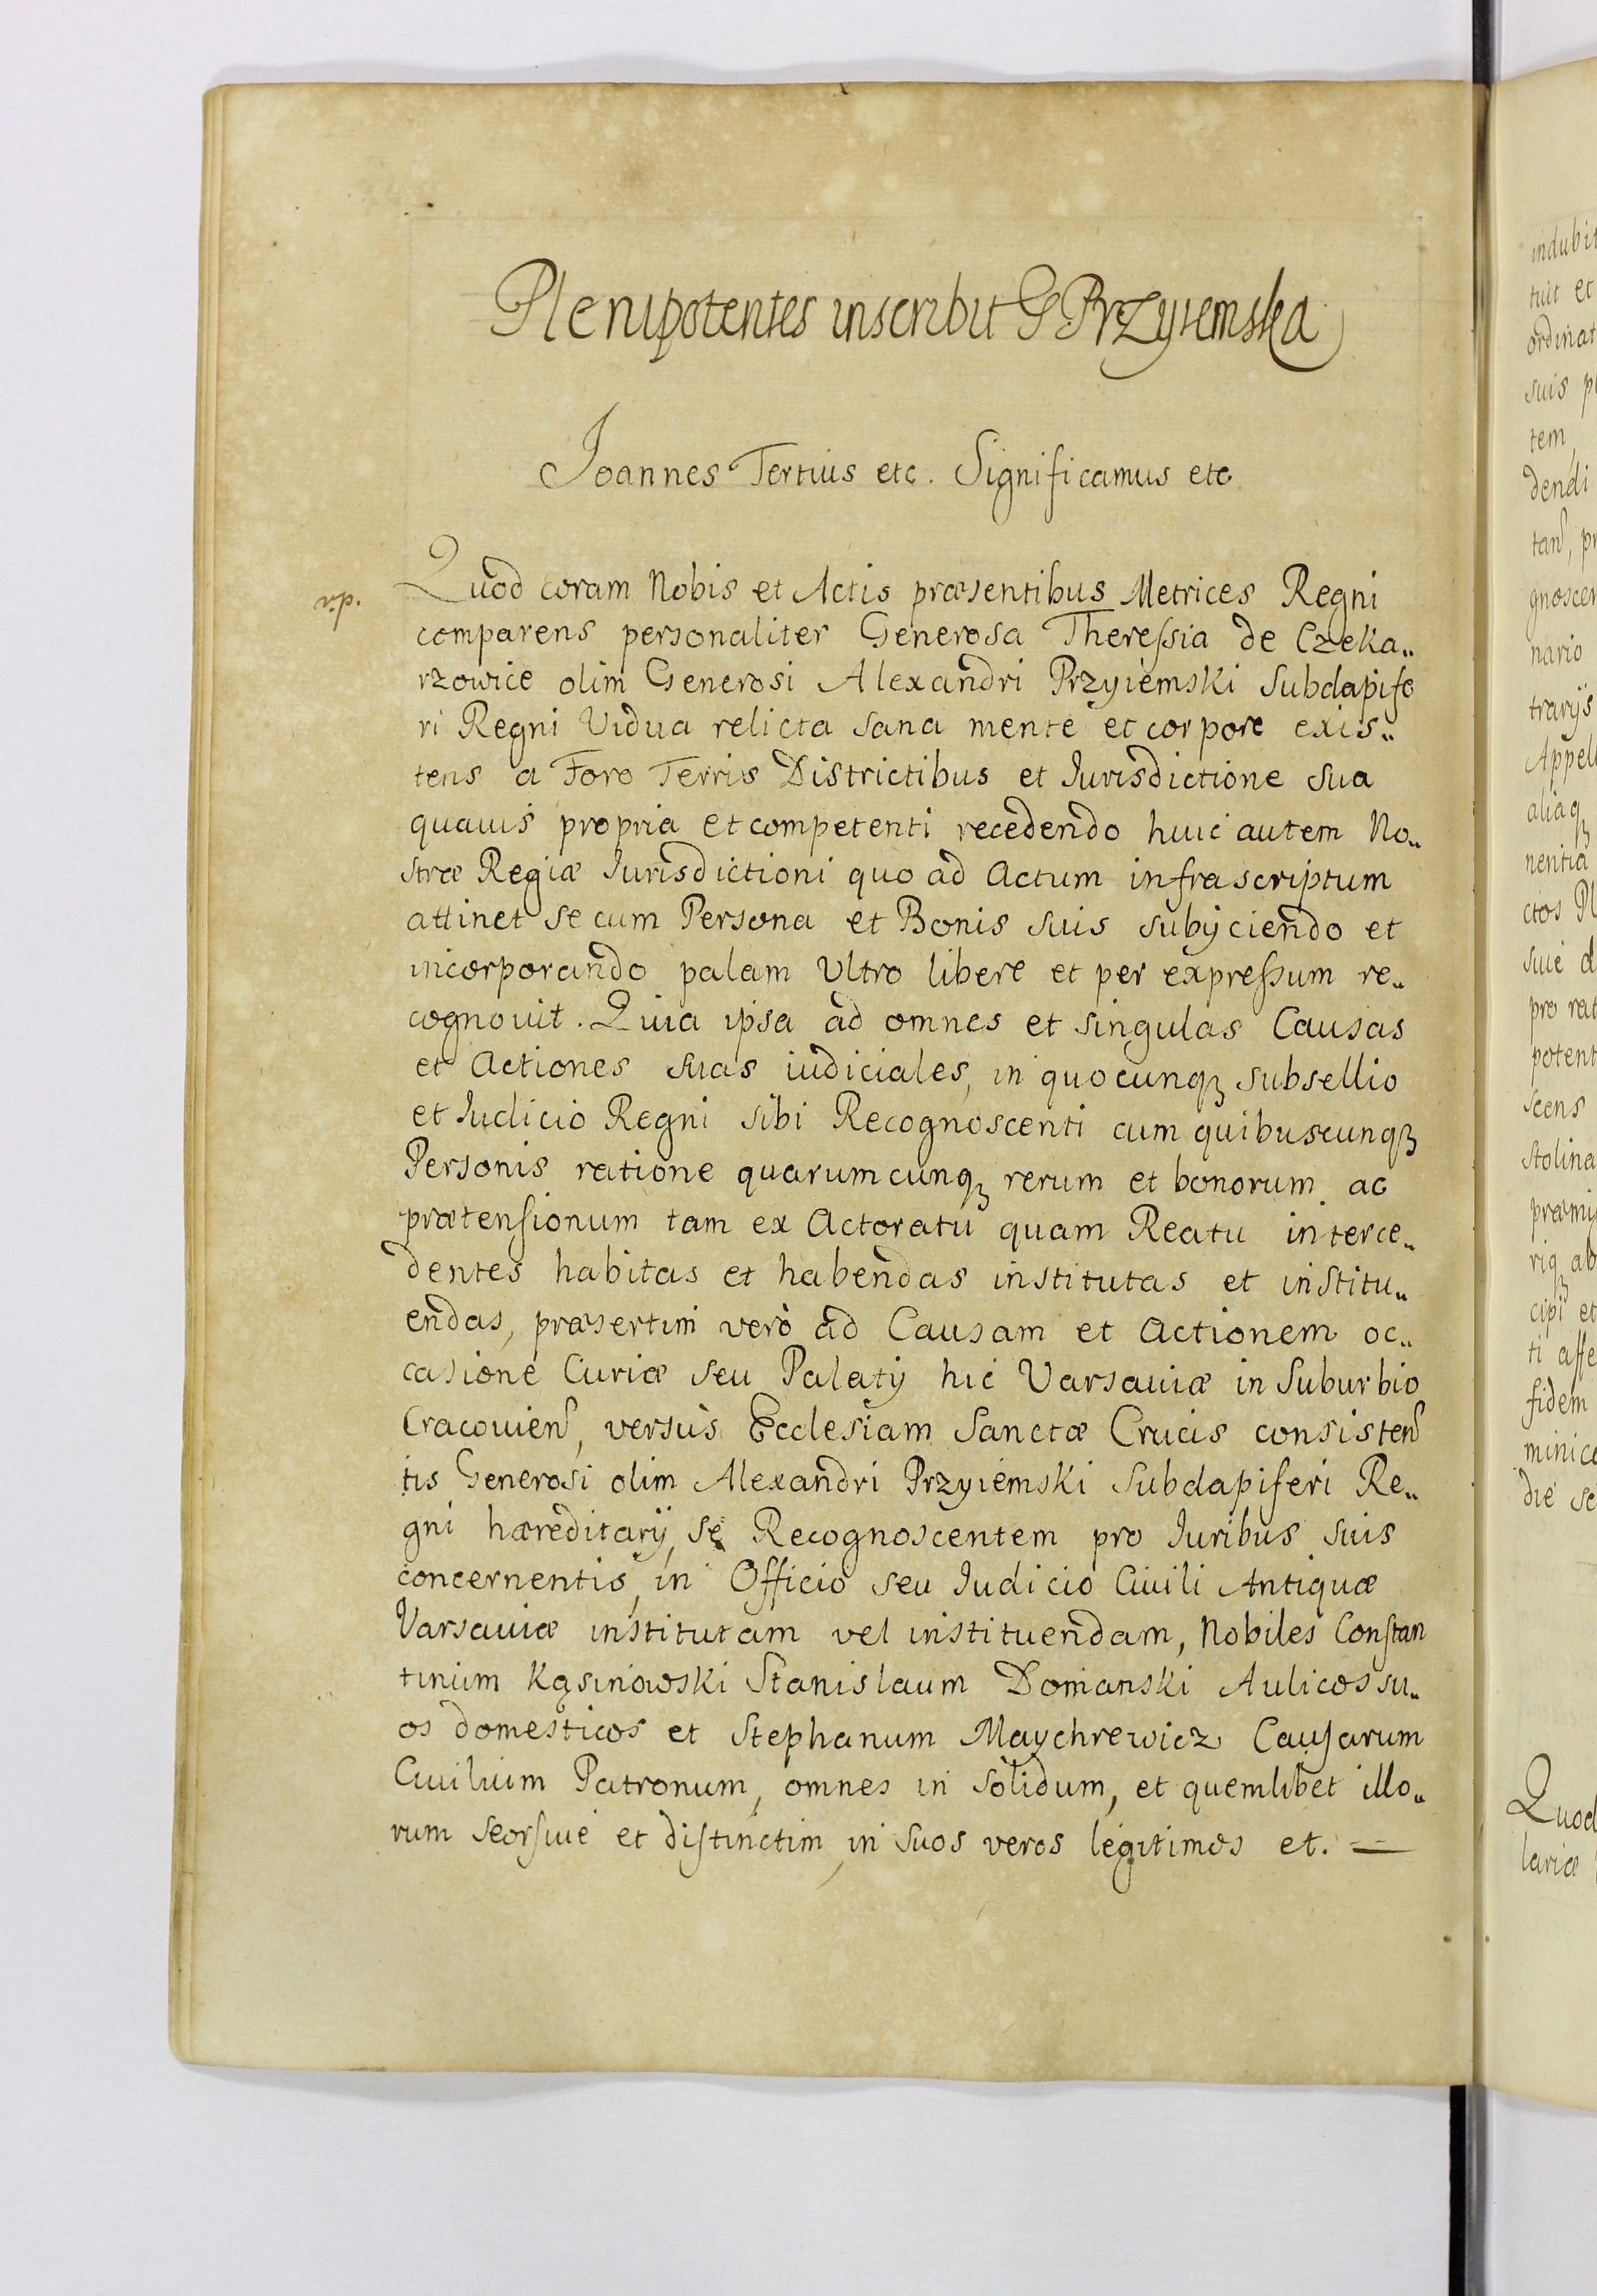 Plenipotentes inscribit G Przyiemska
Ioannes Tertius etc. Significamus etc
v.p.
Quod coram Nobis et Actis præsentibus Metrices Regni
comparens personaliter Generosa Theressia de Czeka„
rzowice olim Generosi Alexandri Przyiemski Subdapife
ri Regni Vidua relicta sana mente et corpore exis„
tens a Foro Terris Districtibus et Iurisdictione sua
quauis propria et competenti recedendo huic autem No„
stræ Regiæ Iurisdictioni quo ad Actum infrascriptum
attinet se cum Persona et Bonis suis subijciendo et
incorporando palam Vltro libere et per expressum re„
cognouit. Quia ipsa ad omnes et singulas Causas
et Actiones suas iudiciales, in quocunqꝫ subsellio
et Iudicio Regni sibi Recognoscenti cum quibuscunqꝫ
Personis ratione quarumcunqꝫ rerum et bonorum ac
prætensionum tam ex Actoratu quam Reatu interce„
dentes habitas et habendas institutas et institu„
endas, præsertim verò ad Causam et Actionem oc„
casione Curiæ seu Palatij hic Varsauiæ in Suburbio
Cracouien, versus Ecclesiam Sanctæ Crucis consisten
tis Generosi olim Alexandri Przyiemski Subdapiferi Re„
gni hæreditarij, se Recognoscentem pro Iuribus suis
concernentis, in Officio seu Iudicio Ciuili Antiquæ
Varsauiæ institutam vel instituendam, Nobiles Constan
tinum Kąsinowski Stanislaum Domanski Aulicos su„
os domesticos et Stephanum Maychrewicz Causarum
Ciuilium Patronum, omnes in solidum, et quemlibet illo„
rum seorsiue et distinctim, in suos veros legitimos et. —
tuit et
suis
tem
dendi
nario
nentia
potent
fidem
Quod